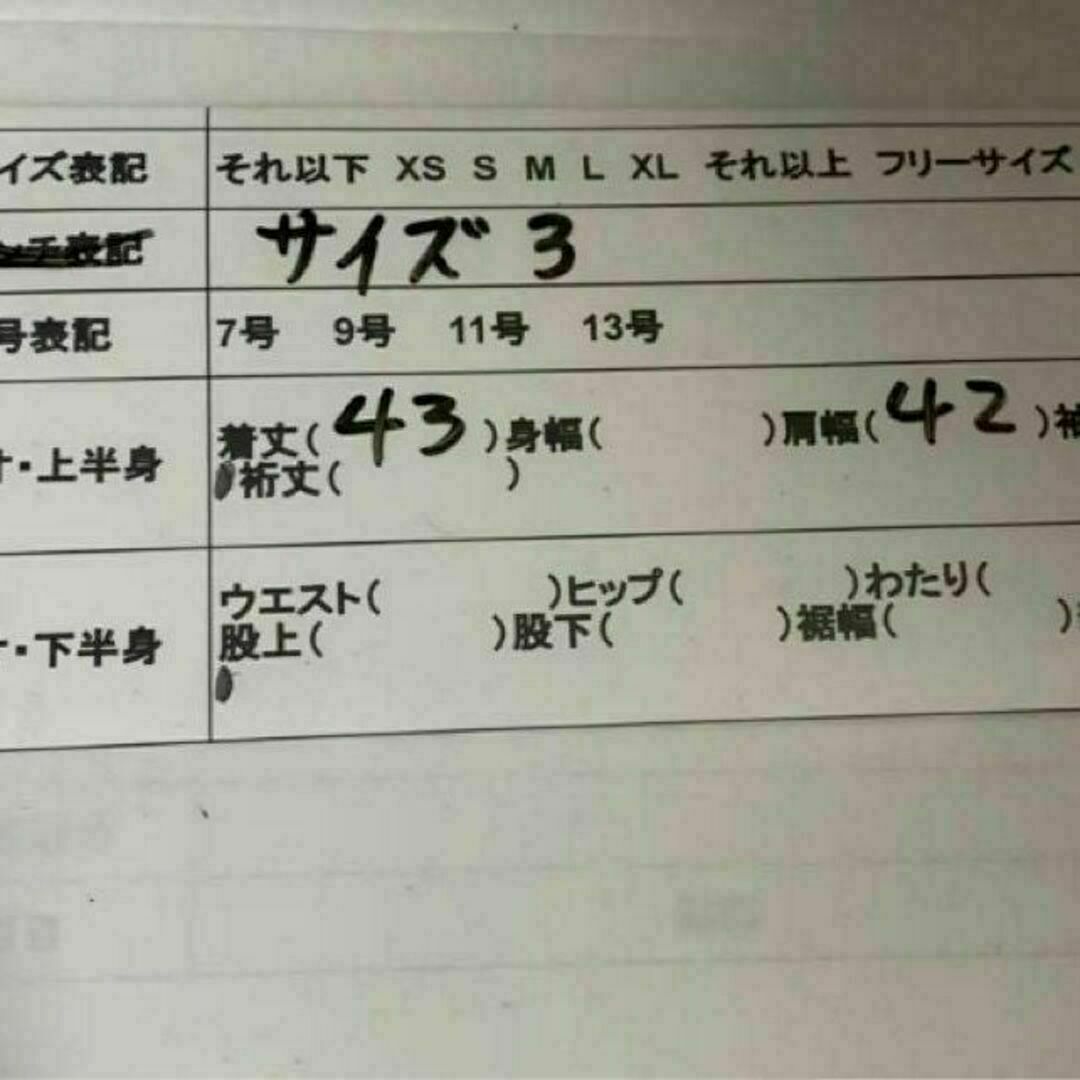 イズ表記 それ以下 XS S M L XL それ以上 フリーサイズ
ンチ表記 サイズ 3
号表記 7号 9号 11号 13号
・上半身 着丈( 43 )身幅( )肩幅( 42 )袖
裄丈( )
・下半身 ウエスト( )ヒップ( )わたり(
股上( )股下( )裾幅( )